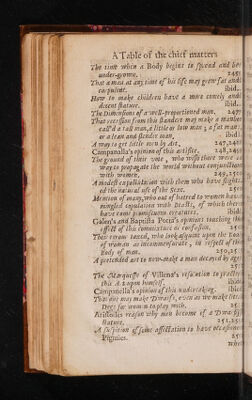 A Table of the chief matters
The time when a Body begins to spread and be
under-growne. 245
That a man at any time of his life may grow fat and
corpulent. ibid.
How to make children have a more comely and
decent stature. ibid.
The Dimensions of a well-proportioned man. 247
That recession from this standerd may make a man be
call'd a tall man, a little or low man; a fat man;
or a lean and slender man, ibid.
A way to get little men by Art, 247,248
Campanella's opinion of this artifice. 248,249
The ground of their vote, who wisht there were a
way to propagate the world without conjunction
with women. 249,250
A modest expostulation with them who have slight
ed the naturall use of the Sexe. 25
Mention of many, who out of hatred to women having
mingled copulation with Beasts, of which there
have come promiscuous creatures. ibid
Galen's and Baptista Porta's opinions touching the
effect of this commixture or confusion. 25
Their errour taxed, who look asquint upon the Body
of woman as incommensurate, in respect of the
Body of man. 250,25
A pretended art to new-make a man decayed by age
The Marquesse of Villena's resolution to practise
this A t upon himself. ibid
Campanella's opinion of this undertaking. ibid
That one may make Dwarfs, even as we make little
Dogs for women to play with. 25
Aristotles reason why men become of a Dwarfish
stature. 251,25
A suspition of some affectation to have occasioned
Pigmies. 25